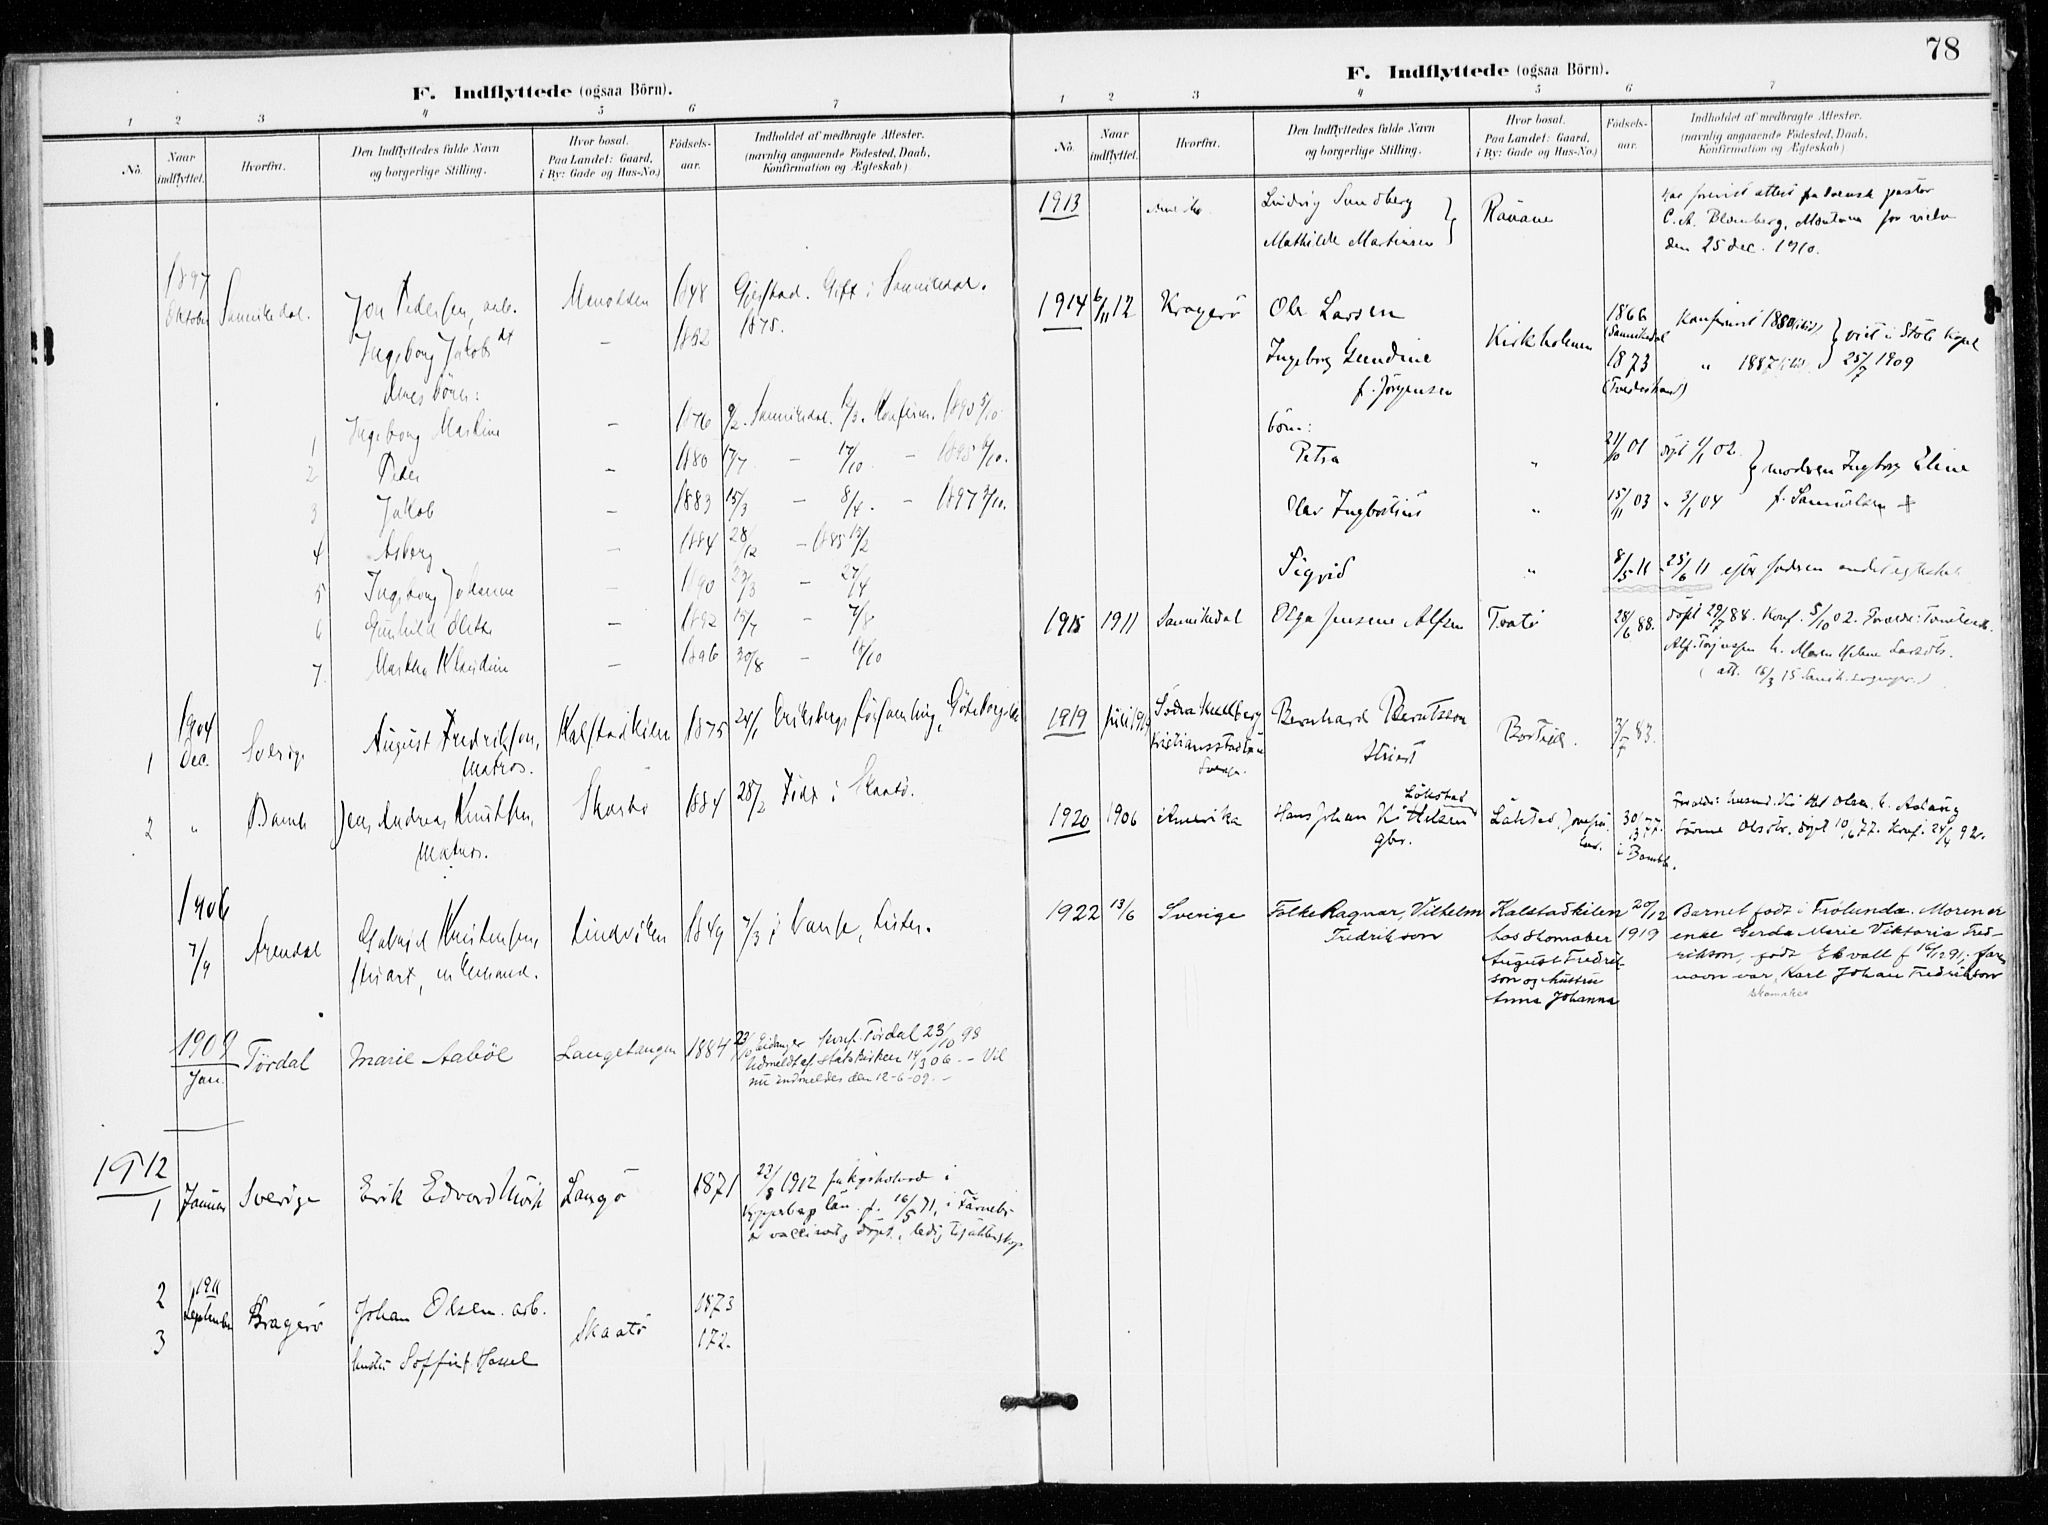 78
F. Indflyttede (ogsaa Börn).
1 2 3 4 5 6 7
No. Naar indflyttet. Hvorfra. Den Indflyttedes fulde Navn og borgerlige Stilling. Hvor bosat. Paa Landet: Gaard, i By: Gade og Hus-No.) Fødsels-aar. Indholdet af medbragte Attester. (navnlig angaaende Fødested, Daab, Konfirmation og Ægteskab)
1897
Oktober Sannikedal. Jon Pedersen, arb. 1848 Gjerstad. Gift i Sannikedal.
Ingeborg Jakobsdt — 1852 1875.
deres börn:
1 Ingeborg Martine — 1876 9/2. Sannikedal. Konfirm. 1890 5/10
2 Peder — 1880 17/7 — 17/10 — 1895 6/10.
3 Jakob — 1883 15/3 — 8/4. — 1897 3/10.
4 Asberg — 1884 28/12 — 1885 15/2
5 Ingeborg Johanne — 1890 — 27/4
6 Gunhild Mette — 1892 15/7 — 7/8
7. Martha Klaudine — 1896 30/8 — 18/10
1904
1 Dec. Sverige August Fredriksson, Kalstadkilen 1875 24/1 Eriksbergs församling, Göteborg
Matros.
2 " Bamle Jens Andreas Knutsen, Skaatö 1884 28/2 Född i Skaatö.
Matros.
1906
7/9 Arendal Gabriel Kristensen, Lindviken 1849 7/3 i Vanse, Lister.
Stuart, m Enkemand.
1909
Jan. Tördal Marie Aaböl Langetangen 1884 23/10 Eidanger Konf. Tördal 23/10 98
Udmeldt af Statskirken 14/3 06. — Vil
nu indmeldes den 12-6-09. —
1912
1 Januar Sverige Erik Edvard Mörk Langö 1871 23/8 1912 i
Kopparbergs län. f. 16/5 71, i Färnebo
er vaccinert, döpt, ledig til ägtenskap
2 1911 September Kragerö Johan Olsen. arb. Skaatö 1873
3 hustru Soffie f. Hassel 172.
F. Indflyttede (ogsaa Börn).
1 2 3 4 5 6 7
No. Naar indflyttet. Hvorfra. Den Indflyttedes fulde Navn og borgerlige Stilling. Hvor bosat. Paa Landet: Gaard, i By: Gade og Hus-No.) Fødsels-aar. Indholdet af medbragte Attester. (navnlig angaaende Fødested, Daab, Konfirmation og Ægteskab)
1913 Ludvig Sundberg Rauane Har forevist attest fra svensk pastor
Mathilde Martinsen C. A. Blomberg, Montana for vielse
den 25 dec. 1910.
1914 6/11 12 Kragerö Ole Larsen Kirkholmen 1866 (Sannikedal Konfirmert 1880
Ingeborg Gundine 1873 (Tvedestrand) " 1887 viet i Stole kapel 25/7 1909
f. Jörgensen
börn:
Petra " 21/10 01 döpt 1/1 02. moderen Ingeborg Eline
Olav Ingbertius " 15/11 03 " 3/1 04 f. Samuelsen +
Sigrid " 8/5 11 " 25/6 11
1915 1911 Sannikedal Olga Jensene Alfsen Tåtö 28/6 88. döpt 29/7 88. Konf. 5/10 02. Foreldre:
Alf Terjessen h. Maren Helene Larsdtr.
(att. 16/3 15 Sanik. sogneprest)
1919 Juli 1915 Södra Mellby Bernhard Berntsson Borteid. 3/7 83.
Kristiansstads län Stuert
Sverige.
1920 1906 Amerika Hans Johan Kittelsen Lökstad Lökstad, 30/3 77. Foreldre: husmd. Kittel Olsen h. Aslaug
gbr. i Bamble. Olsdtr. döpt 10/6 77. Konf. 24/4 92.
1922 13/6 Sverige Folke Ragnar Vilhelm Kalstadkilen 20/12 Barnet födt i Frölunda. Moren er
Fredrikson hos Skomaker 1919 enke Gerda Marie Viktoria Fred-
August Fredrik- rikson, födt Ekvall f 16/12 91; fars
son og hustru navn var Karl Johan Fredrikson
Anna Johanna skomaker